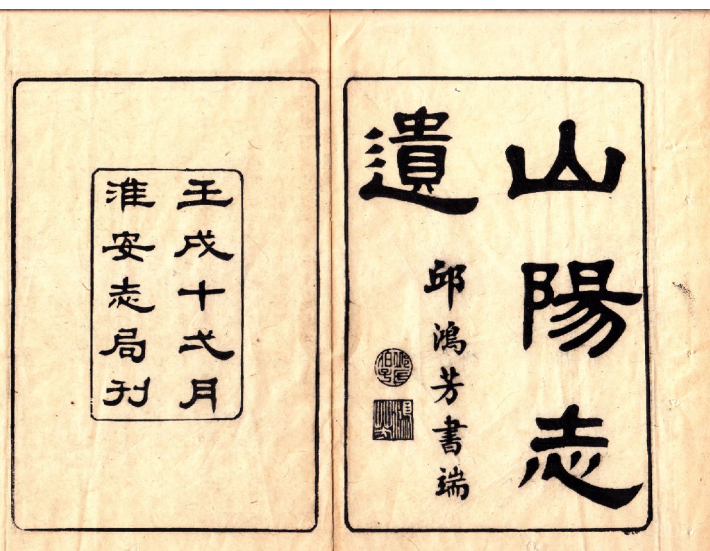 山陽志
遺
邱鴻芳書端
壬戌十弍月
淮安志局刊